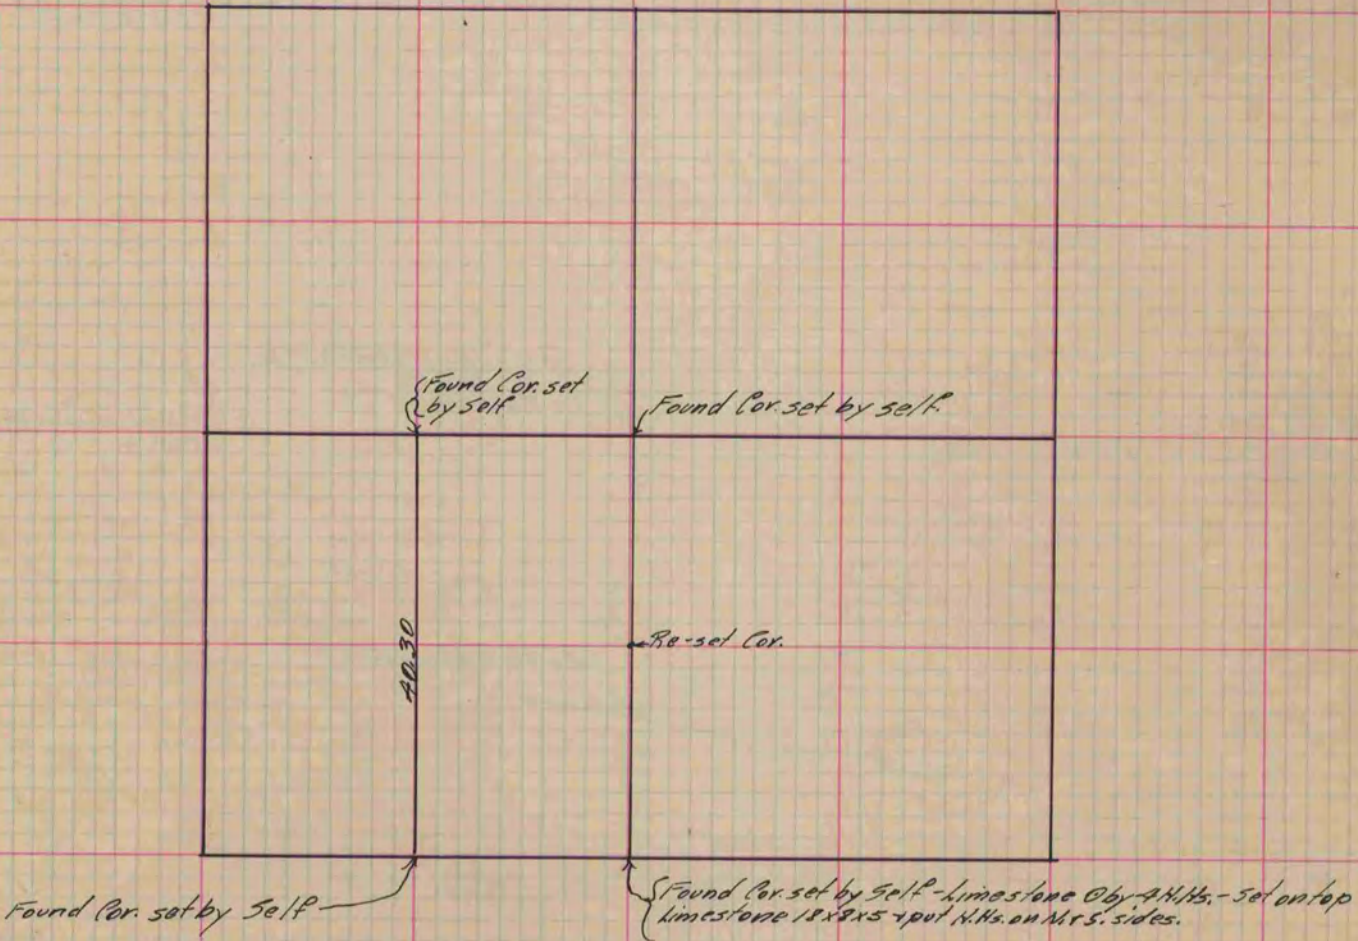 Found Cor. set
by Self
Found Cor. set by self.
40.30
Re-set Cor.
Found Cor. set by Self
Found Cor. set by Self - Limestone @ by 4 H.Hs. - Set on top
Limestone 18x8x5 + put H.Hs. on N. & S. sides.